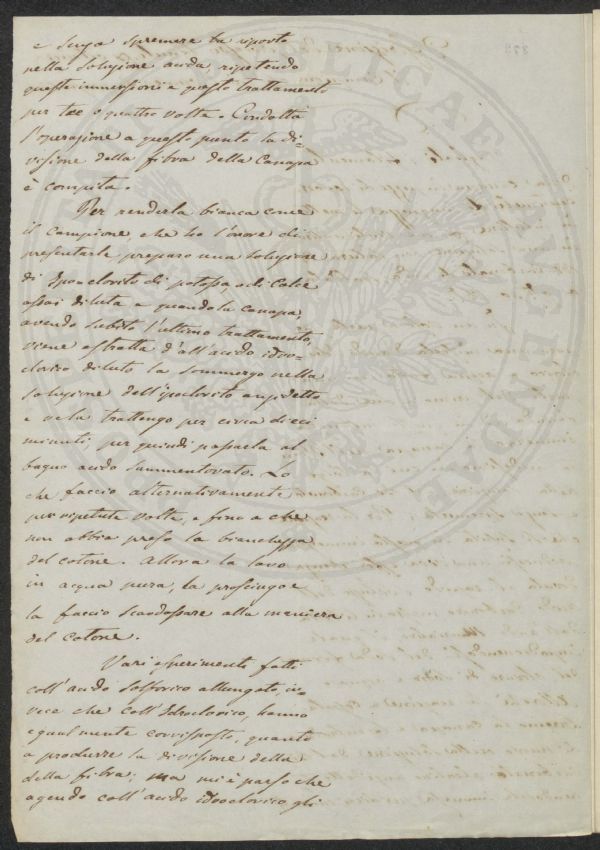 e dopo spremere la riposta
nella soluzione acida ripetendo
queste immersioni e questo trattamento
per tre o quattro volte. Condotta
l'operazione a questo punto la di-
visione della fibra della Canapa
è compita.
Per renderla bianca come
il campione, che ho l'onore di
presentarle, preparo una soluzione
di Ipoclorito di potassa o di Calce
assai diluta e quando la canapa,
avendo subito l'ultimo trattamento,
viene estratta d'all'acido idro-
clorico diluto la sommergo nella
soluzione dell'ipoclorito anzidetto
e ve la trattengo per circa dieci
minuti, per quindi passarla al
bagno acido summentovato. Lo
che faccio alternativamente
per ripetute volte, e fino a che
non abbia preso la bianchezza
del cotone. Allora la lavo
in acqua pura, la prosciugo e
la faccio scardassare alla maniera
del cotone.
Vari esperimenti fatti
coll'acido solforico allungato, in-
vece che coll'Idroclorico, hanno
egualmente corrisposto, quanto
a produrre la divisione della
della fibra; ma mi è parso che
agendo coll'acido idroclorico gli